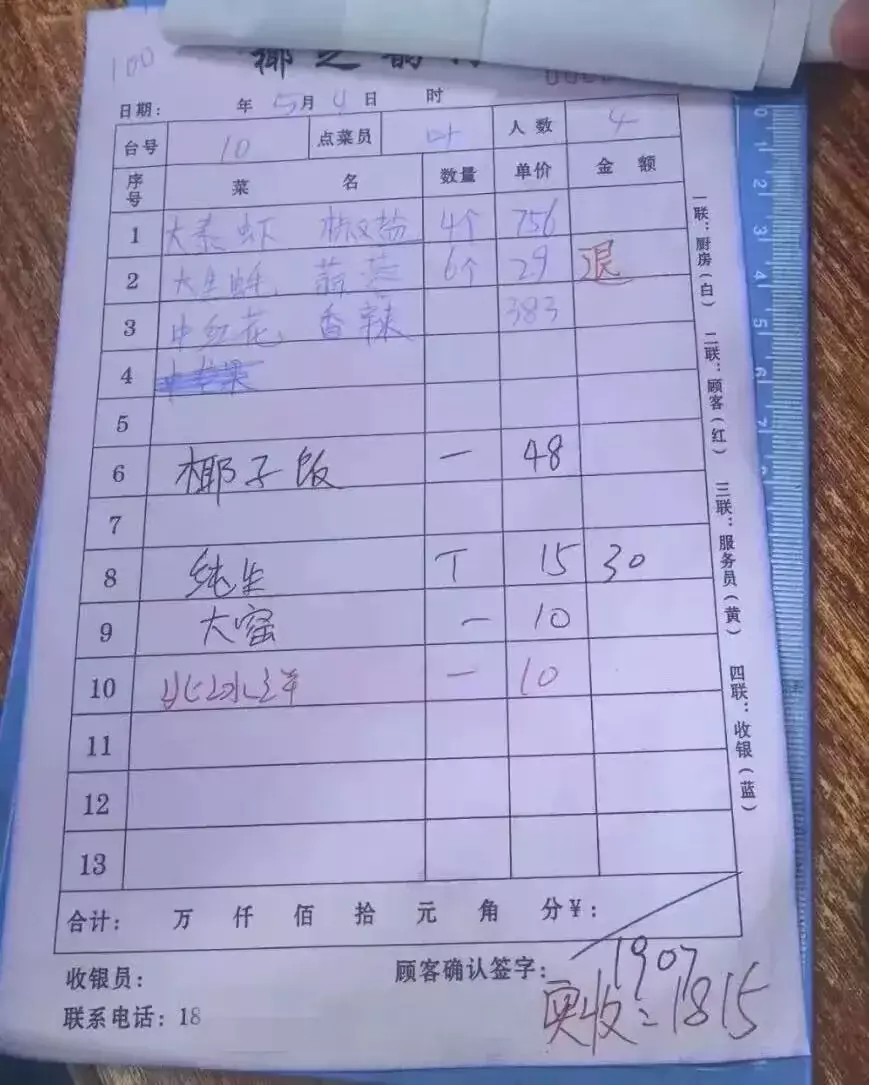 100
椰之韵
日期： 年 5月 4日 时
台号 10 点菜员 叶 人数 4
序号 菜名 数量 单价 金额
1 大泰虾 椒盐 4个 756
2 大生蚝 蒜蓉 6个 29 退
3 中红花 香辣 383
4
5
6 椰子饭 一 48
7
8 纯生 T 15 30
9 大窑 一 10
10 北冰洋 一 10
11
12
13
合计： 万 仟 佰 拾 元 角 分¥：
收银员：
顾客确认签字：
1907
联系电话：18
实收：1815
一联：厨房（白） 二联：顾客（红） 三联：服务员（黄） 四联：收银（蓝）
0
1
2
3
4
5
6
7